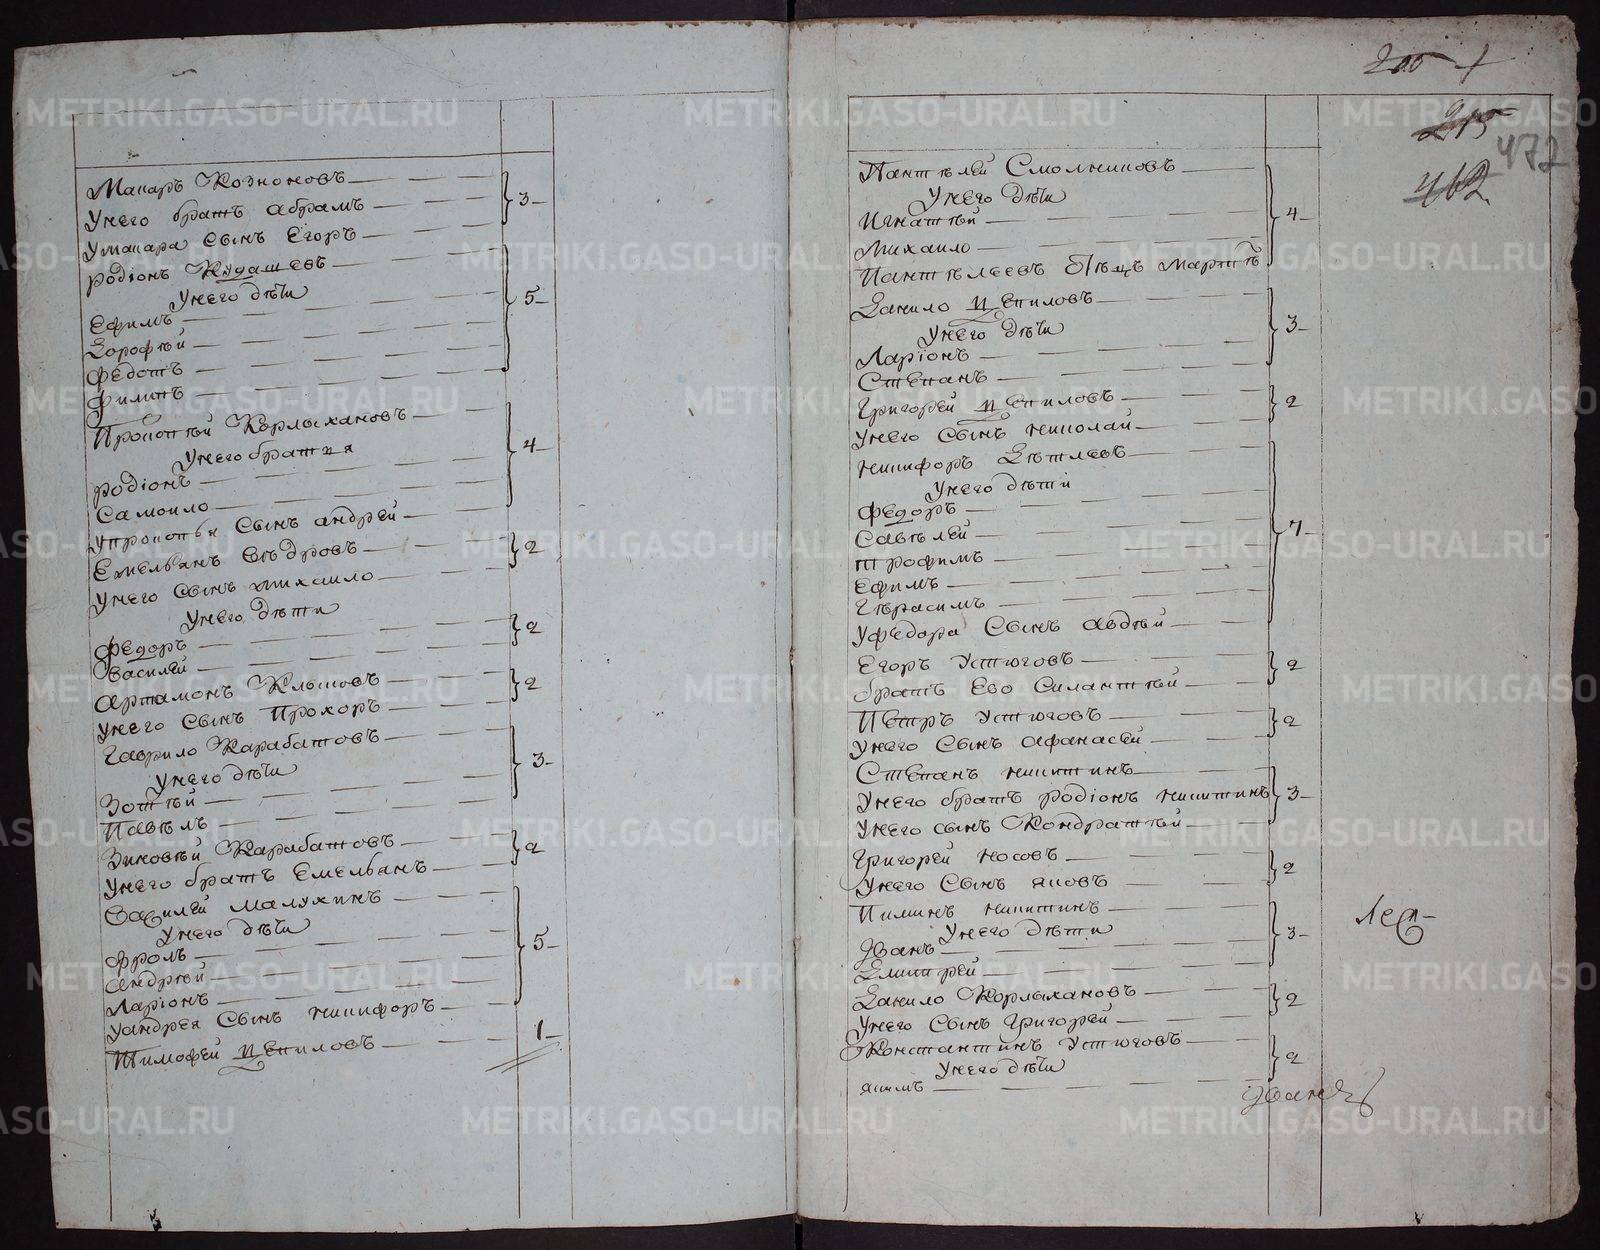 Макаръ Козноковъ
Унего братъ абрамъ
Умакара Сынъ Егоръ
3
родіонъ Кудашевъ
Унего дѣти
Ефимъ
Дорофѣй
Федотъ
Филипъ
5
Прокопѣй Корлыхановъ
Унего братия
родіонъ
Самоило
Упрокопья Сынъ андрей
4
Емельянъ Вѣдровъ
Унего Сынъ михаило
2
Унего дѣти
Федоръ
Василей
2
Артамонъ Клыковъ
Унего Сынъ Прохоръ
2
Гаврило Карабатовъ
Унего дѣти
Зотѣй
Павѣлъ
3
Зиновѣй Карабатовъ
Унего братъ Емельянъ
2
Василей Малухинъ
Унего дѣти
Фролъ
Андрѣй
Ларіонъ
Уандрея Сынъ никифоръ
5
Тимофей Цепиловъ
1
472
Пантѣлей Смолниковъ
Унего дѣти
Игнатѣй
Михаило
4
Данило Цепиловъ
Унего дѣти
Ларіонъ
Степанъ
3
Григорей Цепиловъ
Унего Сынъ николай
2
никифоръ Дѣтлевъ
Унего дѣти
Федоръ
Савѣлей
трофимъ
Ефимъ
Гѣрасимъ
Уфедора Сынъ авдѣй
7
Егоръ Устюговъ
братъ Ево Силантѣй
2
Пѣтръ Устюговъ
Унего Сынъ афанасей
2
Степанъ никитинъ
Унего братъ родіонъ никитинъ
Унего сынъ Кондратѣй
3
Григорей носовъ
Унего Сынъ яковъ
2
Пиминъ никитинъ
Унего дѣти
Иванъ
Дмитрей
3
Данило Корлыхановъ
Унего Сынъ Григорей
2
Константинъ Устюговъ
Унего дѣти
якимъ
2
METRIKI.GASO-URAL.RU